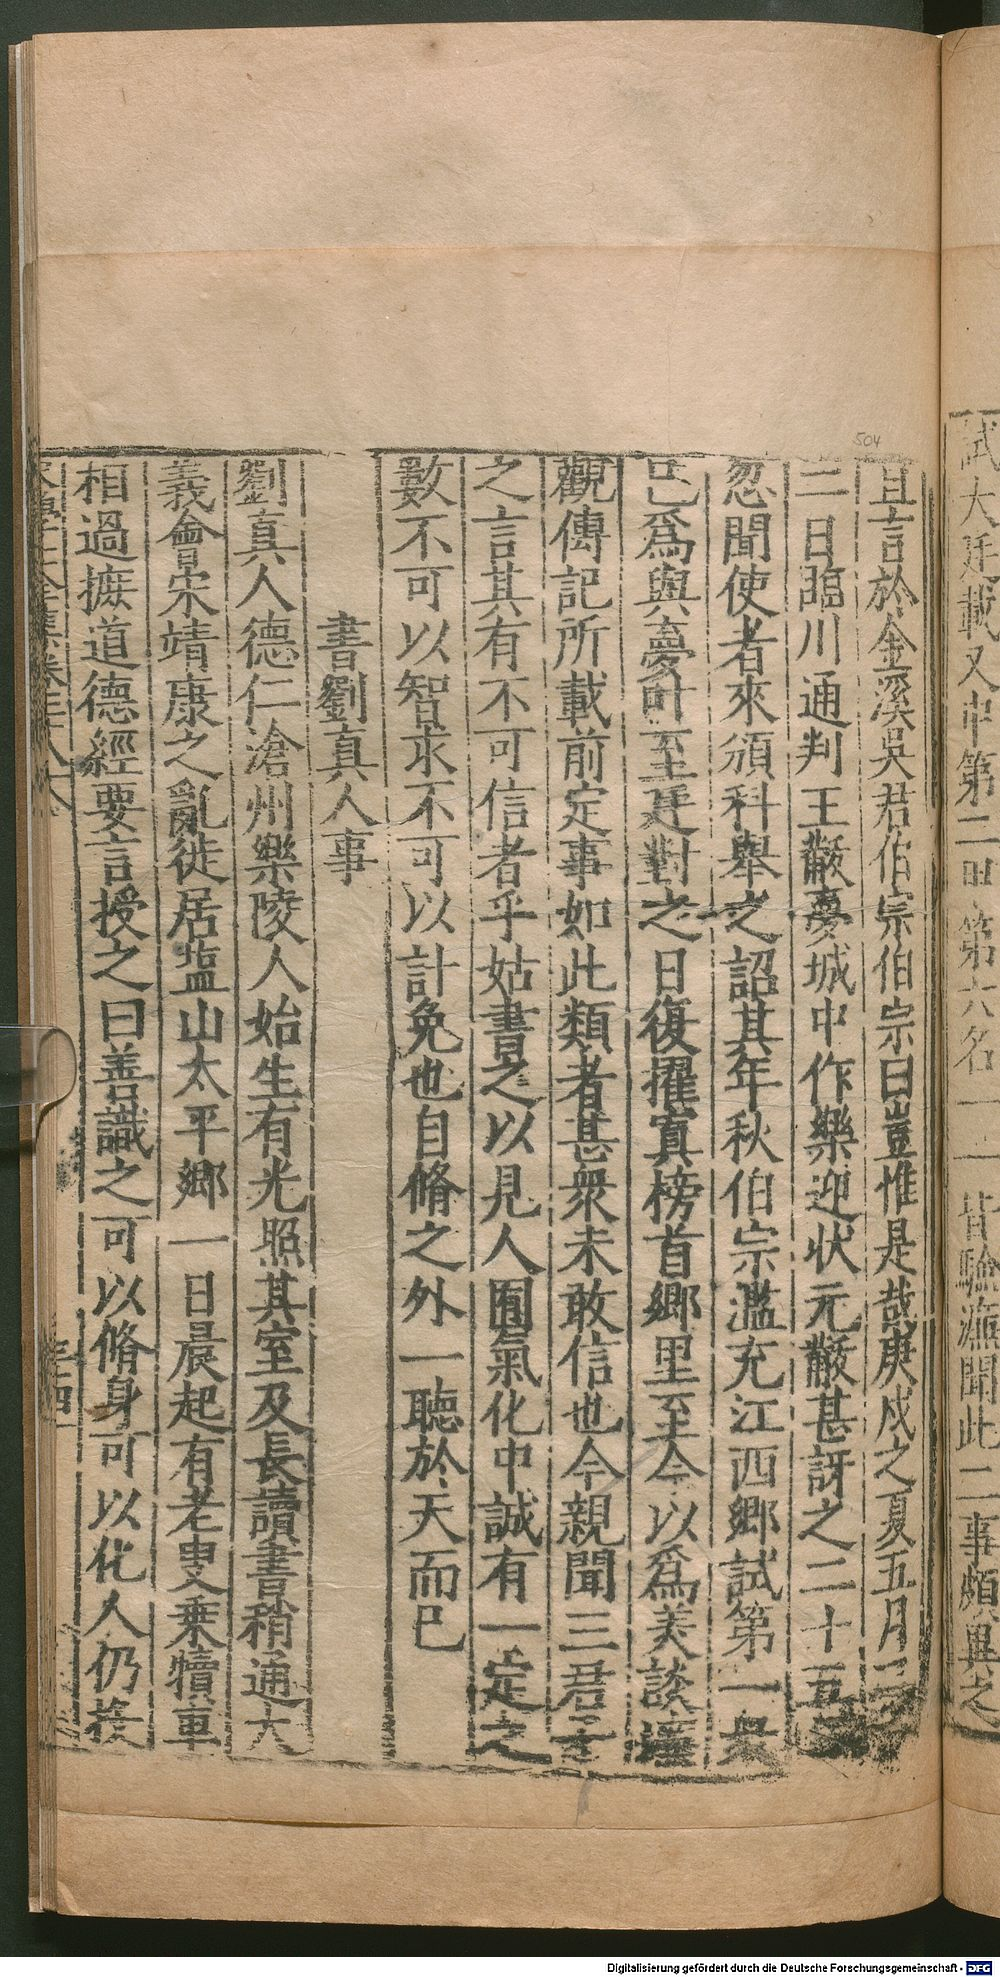 試大廷載又中第二甲第六名一一皆驗濂聞此二事頗異之
504
且言於金溪吳君伯宗伯宗曰豈惟是哉庚戌之夏五月
二日臨川通判王黻夢城中作樂迎狀元黻甚訝之二十五
忽聞使者來頒科舉之詔其年秋伯宗濫充江西鄉試第一
已爲與夢叶至廷對之日復擢寘榜首鄉里至今以爲美談
觀傳記所載前定事如此類者甚衆未敢信也今親聞三君子
之言其有不可信者乎姑書之以見人囿氣化中誠有一定之
數不可以智求不可以計免也自脩之外一聽於天而已
書劉真人事
劉真人德仁滄州樂陵人始生有光照其室及長讀書稍通大
義會宋靖康之亂徙居塩山太平鄉一日晨起有老叟乘犢車
相過摭道德經要言授之曰善識之可以脩身可以化人仍授
宋學士全集卷三十八
Digitalisierung gefördert durch die Deutsche Forschungsgemeinschaft - DFG